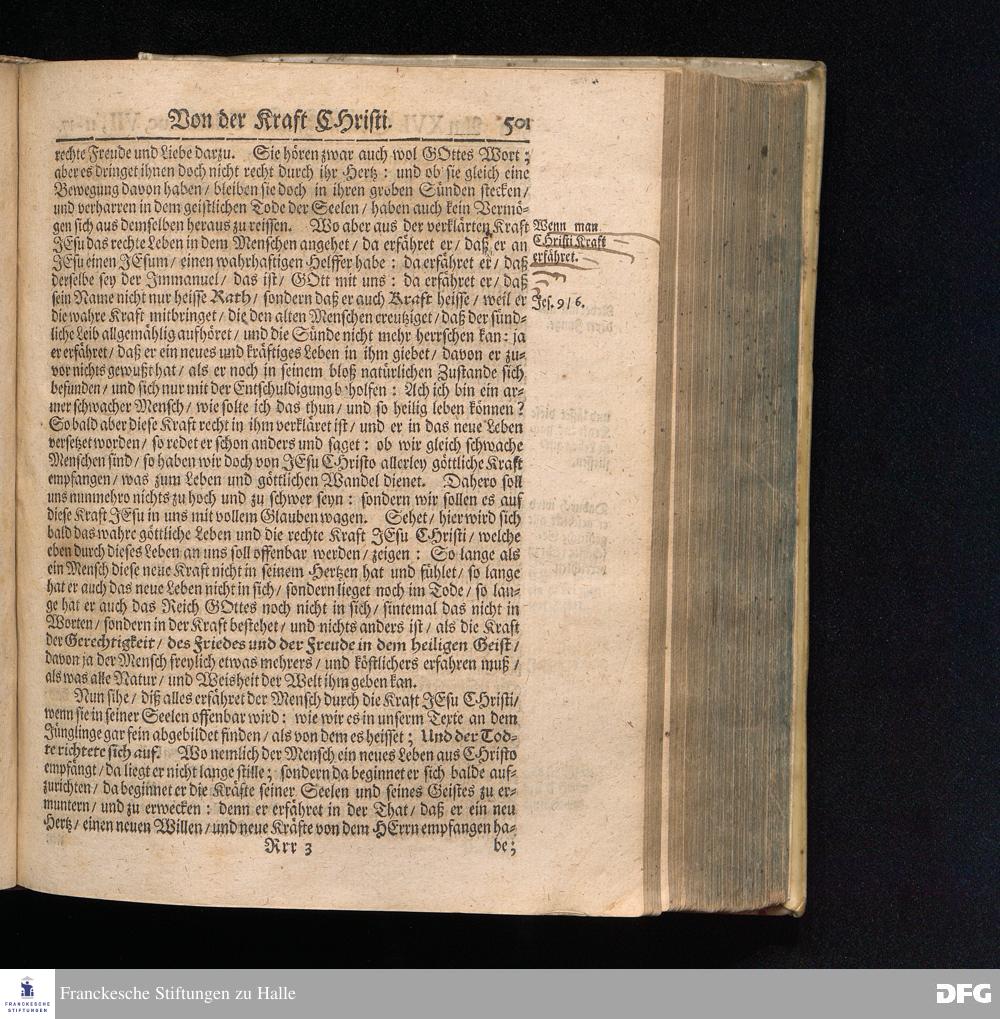 Von der Kraft CHristi. 501
rechte Freude und Liebe darzu. Sie hören zwar auch wol GOttes Wort;
aber es dringet ihnen doch nicht recht durch ihr Hertz: und ob sie gleich eine
Bewegung davon haben / bleiben sie doch in ihren groben Sünden stecken /
und verharren in dem geistlichen Tode der Seelen / haben auch kein Vermö-
gen sich aus demselben heraus zu reissen. Wo aber aus der verklärten Kraft
JEsu das rechte Leben in dem Menschen angehet / da erfähret er / daß er an
JEsu einen JEsum / einen wahrhaftigen Helffer habe: da erfähret er / daß
derselbe sey der Immanuel / das ist / GOtt mit uns: da erfähret er / daß
sein Name nicht nur heisse Rath / sondern daß er auch Kraft heisse / weil er
die wahre Kraft mitbringet / die den alten Menschen creutziget / daß der sünd-
liche Leib allgemählig aufhöret / und die Sünde nicht mehr herrschen kan: ja
er erfähret / daß er ein neues und kräftiges Leben in ihm giebet / davon er zu-
vor nichts gewußt hat / als er noch in seinem bloß natürlichen Zustande sich
befunden / und sich nur mit der Entschuldigung b holfen: Ach ich bin ein ar-
mer schwacher Mensch / wie solte ich das thun / und so heilig leben können?
So bald aber diese Kraft recht in ihm verkläret ist / und er in das neue Leben
versetzet worden / so redet er schon anders und saget: ob wir gleich schwache
Menschen sind / so haben wir doch von JEsu CHristo allerley göttliche Kraft
empfangen / was zum Leben und göttlichen Wandel dienet. Dahero soll
uns nunmehro nichts zu hoch und zu schwer seyn: sondern wir sollen es auf
diese Kraft JEsu in uns mit vollem Glauben wagen. Sehet / hier wird sich
bald das wahre göttliche Leben und die rechte Kraft JEsu CHristi / welche
eben durch dieses Leben an uns soll offenbar werden / zeigen: So lange als
ein Mensch diese neue Kraft nicht in seinem Hertzen hat und fühlet / so lange
hat er auch das neue Leben nicht in sich / sondern lieget noch im Tode / so lan-
ge hat er auch das Reich GOttes noch nicht in sich / sintemal das nicht in
Worten / sondern in der Kraft bestehet / und nichts anders ist / als die Kraft
der Gerechtigkeit / des Friedes und der Freude in dem heiligen Geist /
davon ja der Mensch freylich etwas mehrers / und köstlichers erfahren muß /
als was alle Natur / und Weisheit der Welt ihm geben kan.
Nun sihe / diß alles erfähret der Mensch durch die Kraft JEsu CHristi /
wenn sie in seiner Seelen offenbar wird: wie wir es in unserm Texte an dem
Jünglinge gar fein abgebildet finden / als von dem es heisset; Und der Tod-
te richtete sich auf. Wo nemlich der Mensch ein neues Leben aus CHristo
empfängt / da liegt er nicht lange stille; sondern da beginnet er sich balde auf-
zurichten / da beginnet er die Kräfte seiner Seelen und seines Geistes zu er-
muntern / und zu erwecken: denn er erfähret in der That / daß er ein neu
Hertz / einen neuen Willen / und neue Kräfte von dem HErrn empfangen ha-
Rrr 3 be;
Wenn man
CHristi Kraft
erfähret.
Jes. 9/6.
FRANCKESCHE
STIFTUNGEN
Franckesche Stiftungen zu Halle
DFG